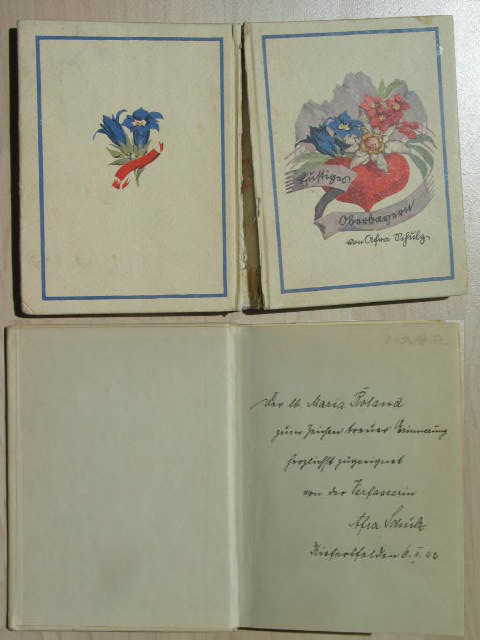 Lustiges
Oberbayern
von Afra Schulz.
Der lb. Maria Roland
zum Zeichen treuer Gesinnung
herzlichst zugeeignet
von der Verfasserin
Afra Schulz
Kiefersfelden 6. II. 42